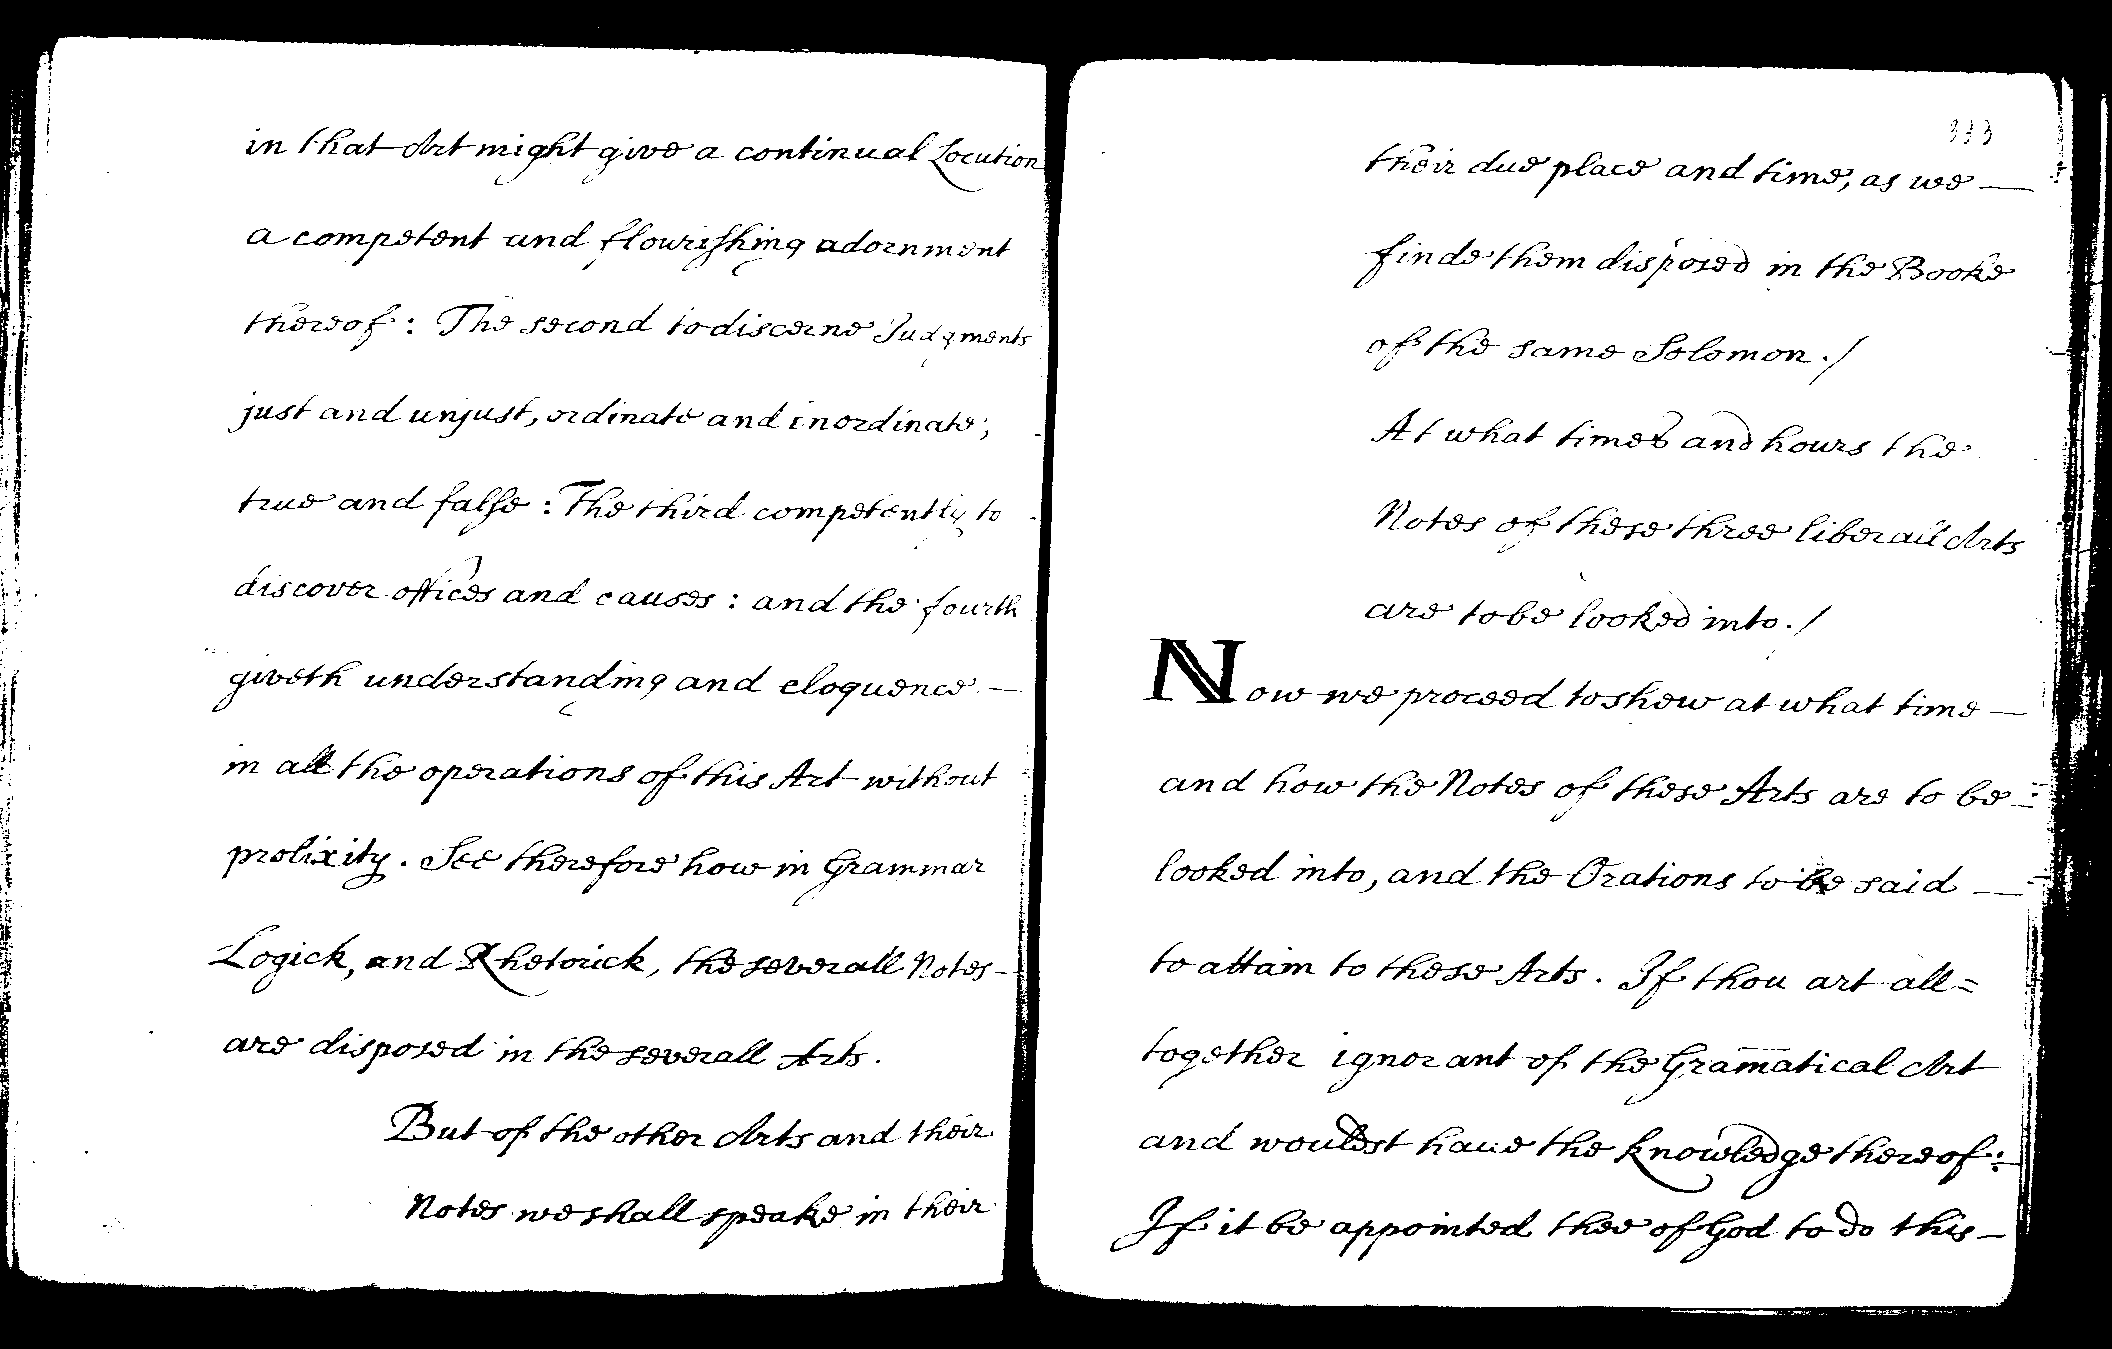 in that Art might give a continual Locution
a competent and flourishing adornment
thereof: The second to discerne Judgments
just and unjust, ordinate and inordinate;
true and false: The third competently to
discover offices and causes: and the fourth
giveth understanding and eloquence —
in all the operations of this Art without
prolixity. See therefore how in Grammar
Logick, and Rhetorick, the severall Notes —
are disposed in the severall Arts.
But of the other Arts and their
Notes we shall speake in their
their due place and time, as we —
finde them disposed in the Booke
of the same Solomon./
At what times and hours the
Notes of these three liberall Arts
are to be looked into./
Now we proceed to shew at what time —
and how the Notes of these Arts are to be —
looked into, and the Orations to be said —
to attain to these Arts. If thou art all=
together ignorant of the Gram̄atical Art
and wouldest haue the knowledge thereof: —
If it be appointed thee of God to do this —